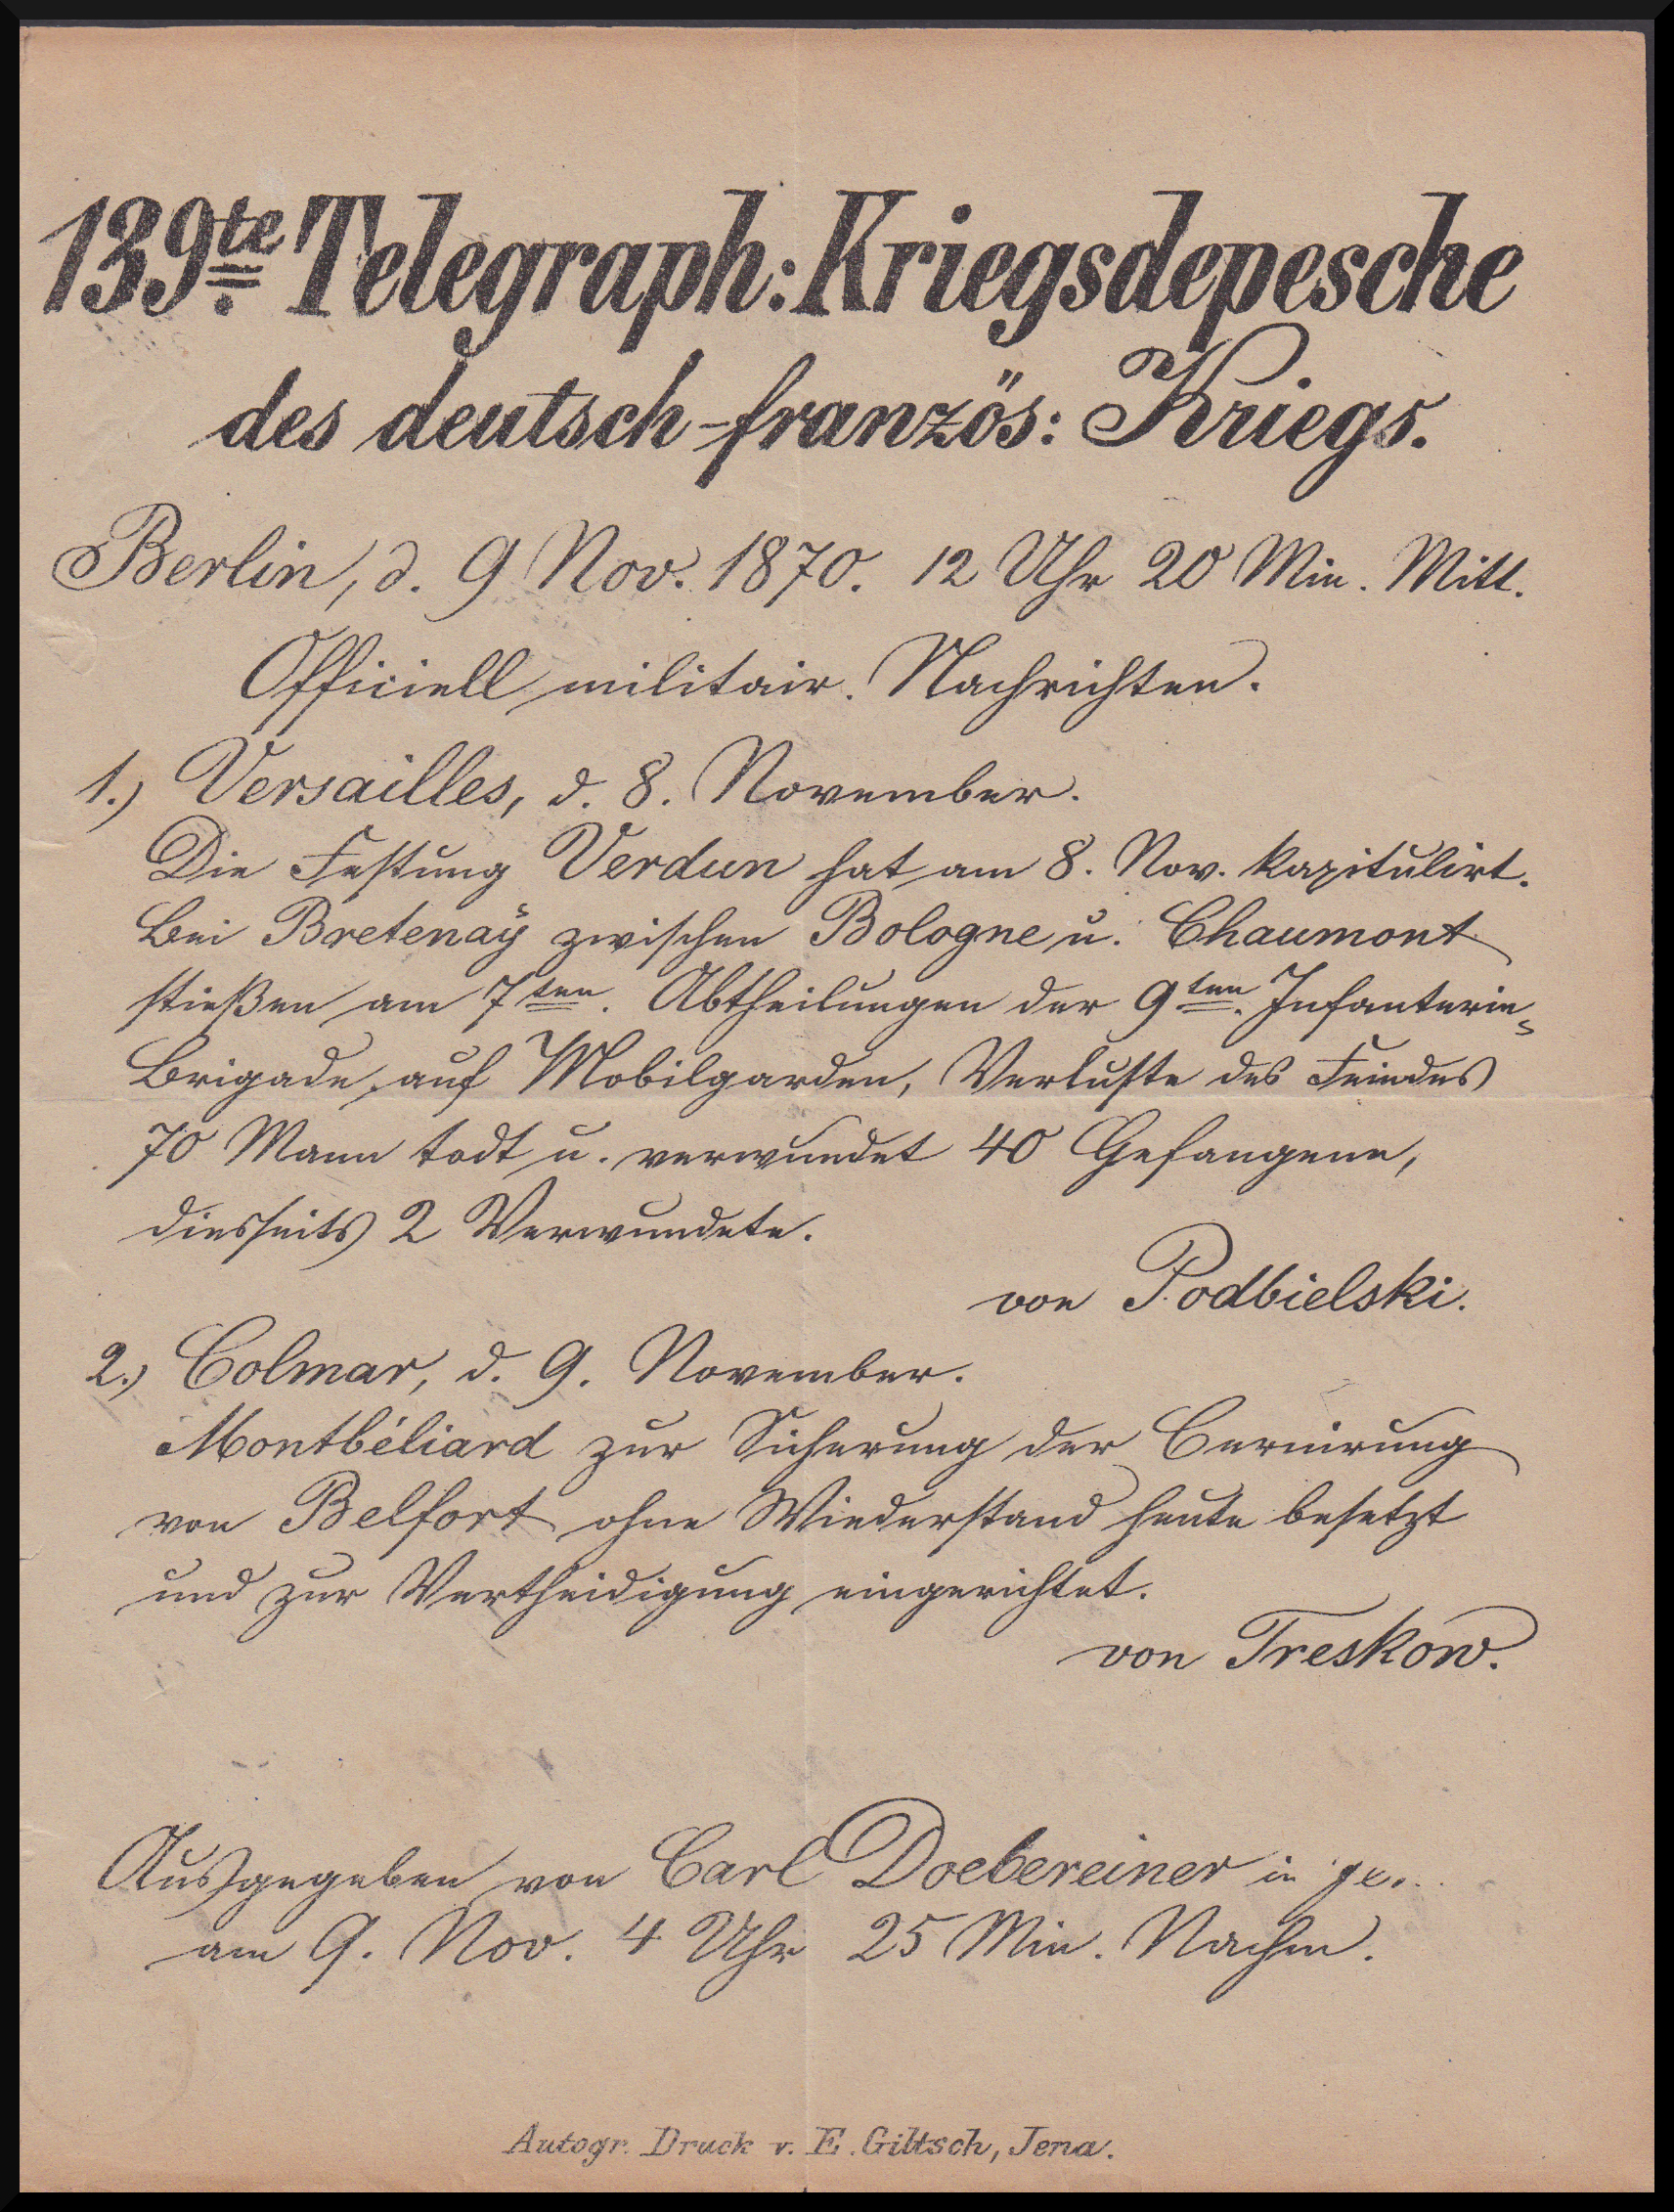 139te. Telegraph: Kriegsdepesche
des deutsch-französ: Kriegs.
Berlin, d. 9 Nov. 1870. 12 Uhr 20 Min. Mitt.
Officiell militair. Nachrichten.
1.) Versailles, d. 8. November.
Die Festung Verdun hat am 8. Nov. kapitulirt.
Bei Bretenaÿ zwischen Bologne u. Chaumont
stießen am 7ten. Abtheilungen der 9ten. Infanterie=
Brigade auf Mobilgarden, Verluste des Feindes
70 Mann todt u. verwundet 40 Gefangene,
diesseits 2 Verwundete.
von Podbielski.
2.) Colmar, d. 9. November.
Montbéliard zur Sicherung der Cernirung
von Belfort ohne Wiederstand heute besetzt
und zur Vertheidigung eingerichtet.
von Treskow.
Ausgegeben von Carl Doebereiner in
am 9. Nov. 4 Uhr 25 Min. Nachm.
Autogr. Druck v. E. Giltsch, Jena.